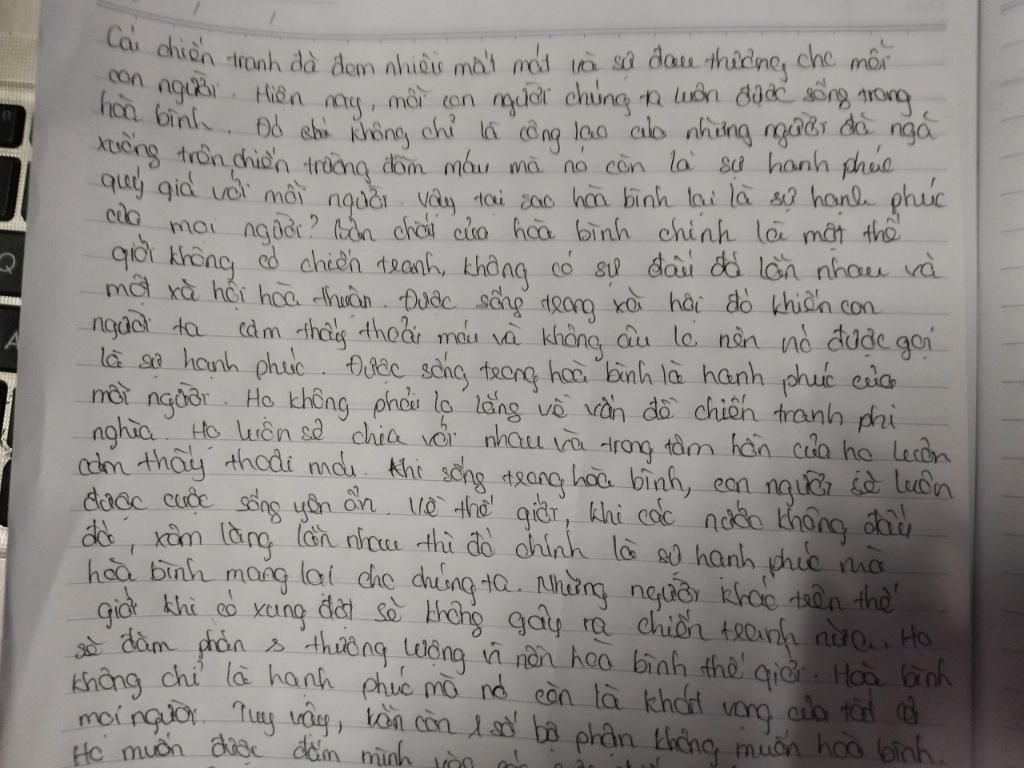 Cái chiến tranh đã đem nhiều mất mát và sự đau thương cho mỗi
con người. Hiện nay, mỗi con người chúng ta luôn được sống trong
hoà bình. Đó không chỉ là công lao của những người đã ngã
xuống trên chiến trường đẫm máu mà nó còn là sự hạnh phúc
quý giá với mỗi người. Vậy tại sao hoà bình lại là sự hạnh phúc
của mọi người? Bản chất của hoà bình chính là một thế
giới không có chiến tranh, không có sự đấu đá lẫn nhau và
một xã hội hòa thuận. Được sống trong xã hội đó khiến con
người ta cảm thấy thoải mái và không âu lo nên nó được gọi
là sự hạnh phúc. Được sống trong hoà bình là hạnh phúc của
mỗi người. Họ không phải lo lắng về vấn đề chiến tranh phi
nghĩa. Họ luôn sẻ chia với nhau và trong tâm hồn của họ luôn
cảm thấy thoải mái. Khi sống trong hoà bình, con người sẽ luôn
được cuộc sống yên ổn. Về thế giới, khi các nước không đấu
đá, xâm lăng lẫn nhau thì đó chính là sự hạnh phúc mà
hoà bình mang lại cho chúng ta. Những người khác trên thế
giới khi có xung đột sẽ không gây ra chiến tranh nữa. Họ
sẽ đàm phán thương lượng vì nền hoà bình thế giới. Hoà bình
không chỉ là hạnh phúc mà nó còn là khát vọng của tất cả
mọi người. Tuy vậy, vẫn còn 1 số bộ phận không muốn hoà bình.
Họ muốn được đắm mình vào